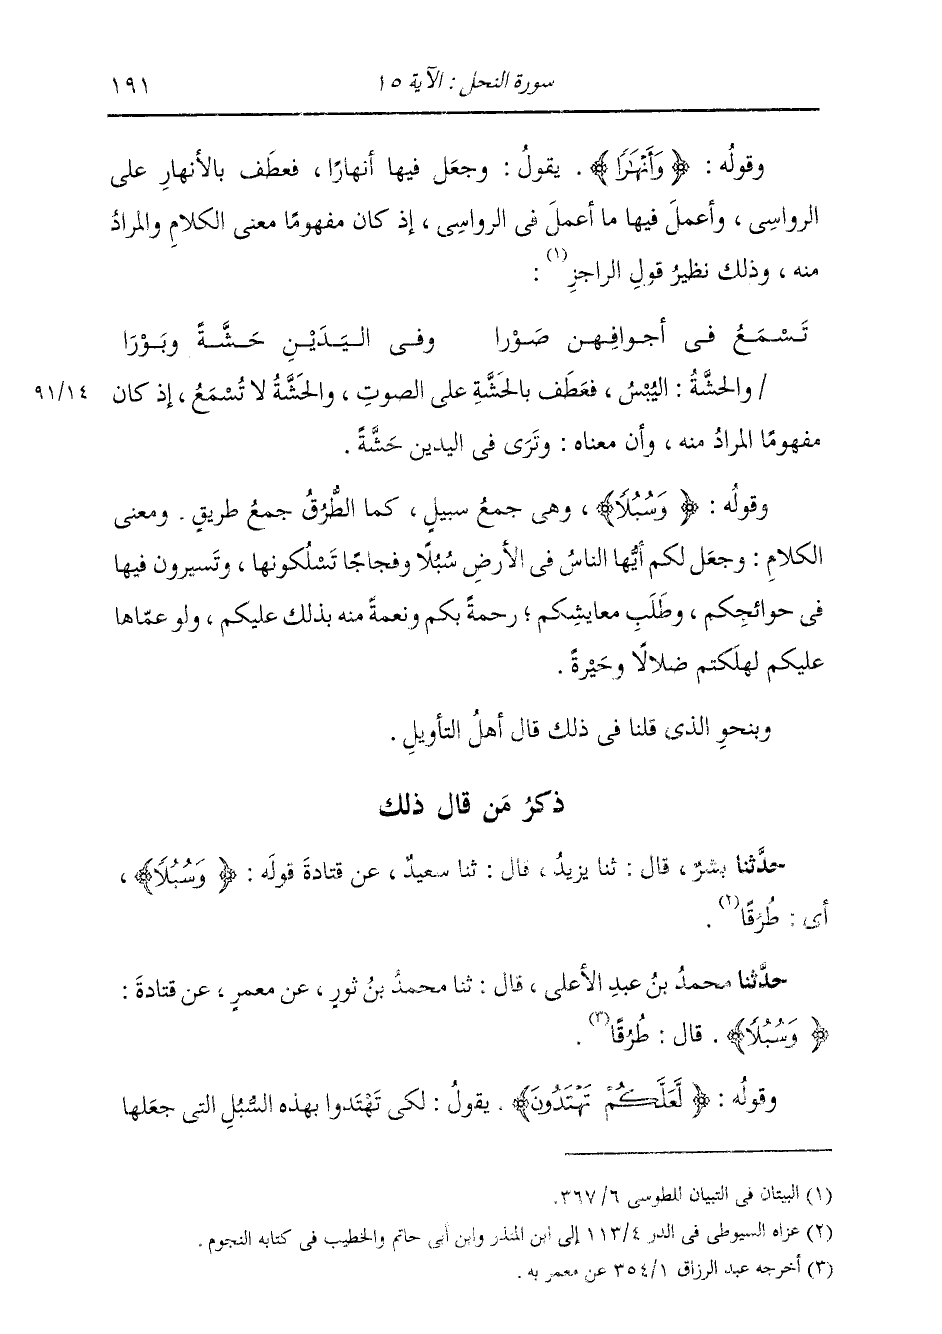 سورة النحل : الآية ١٥ ١٩١
وقولُه : ﴿ وَأَنْهَٰرًا ﴾ . يقولُ : وجعَل فيها أنهارًا ، فعطَف بالأنهارِ على
الرواسِى ، وأعملَ فيها ما أعملَ فى الرواسِى ، إذ كان مفهومًا معنى الكلامِ والمرادُ
منه ، وذلك نظيرُ قولِ الراجزِ(١) :
تَسْمَعُ فى أجوافِهن صَوْرا وفى اليَدَيْنِ حَشَّةً وبَوْرَا
/ والحشَّةُ : اليُبْسُ ، فعَطَف بالحَشَّةِ على الصوتِ ، والحَشَّةُ لا تُسْمَعُ ، إذ كان ٩١/١٤
مفهومًا المرادُ منه ، وأن معناه : وتَرَى فى اليدين حَشَّةً .
وقولُه : ﴿ وَسُبُلًا ﴾ ، وهى جمعُ سبيلٍ ، كما الطُّرُقُ جمعُ طريقٍ . ومعنى
الكلامِ : وجعَل لكم أيُّها الناسُ فى الأرضِ سُبُلًا وفجاجًا تَسْلُكونها ، وتَسيرون فيها
فى حوائجِكم ، وطَلَبِ معايشِكم ؛ رحمةً بكم ونعمةً منه بذلك عليكم ، ولو عمّاها
عليكم لهلَكتم ضلالًا وحَيْرةً .
وبنحوِ الذى قلنا فى ذلك قال أهلُ التأويلِ .
ذكرُ مَن قال ذلك
حدَّثنا بشرٌ ، قال : ثنا يزيدُ ، قال : ثنا سعيدٌ ، عن قتادةَ قولَه : ﴿ وَسُبُلًا ﴾ ،
أى : طُرُقًا(٢) .
حدَّثنا محمدُ بنُ عبدِ الأعلى ، قال : ثنا محمدُ بنُ ثورٍ ، عن معمرٍ ، عن قتادةَ :
﴿ وَسُبُلًا ﴾ . قال : طُرُقًا(٣) .
وقولُه : ﴿ لَّعَلَّكُمْ تَهْتَدُونَ ﴾ . يقولُ : لكى تَهْتَدوا بهذه السُّبُلِ التى جعَلها
(١) البيتان فى التبيان للطوسى ٣٦٧/٦.
(٢) عزاه السيوطى فى الدر ١١٣/٤ إلى ابن المنذر وابن أبى حاتم والخطيب فى كتابه النجوم .
(٣) أخرجه عبد الرزاق ٣٥٤/١ عن معمر به .